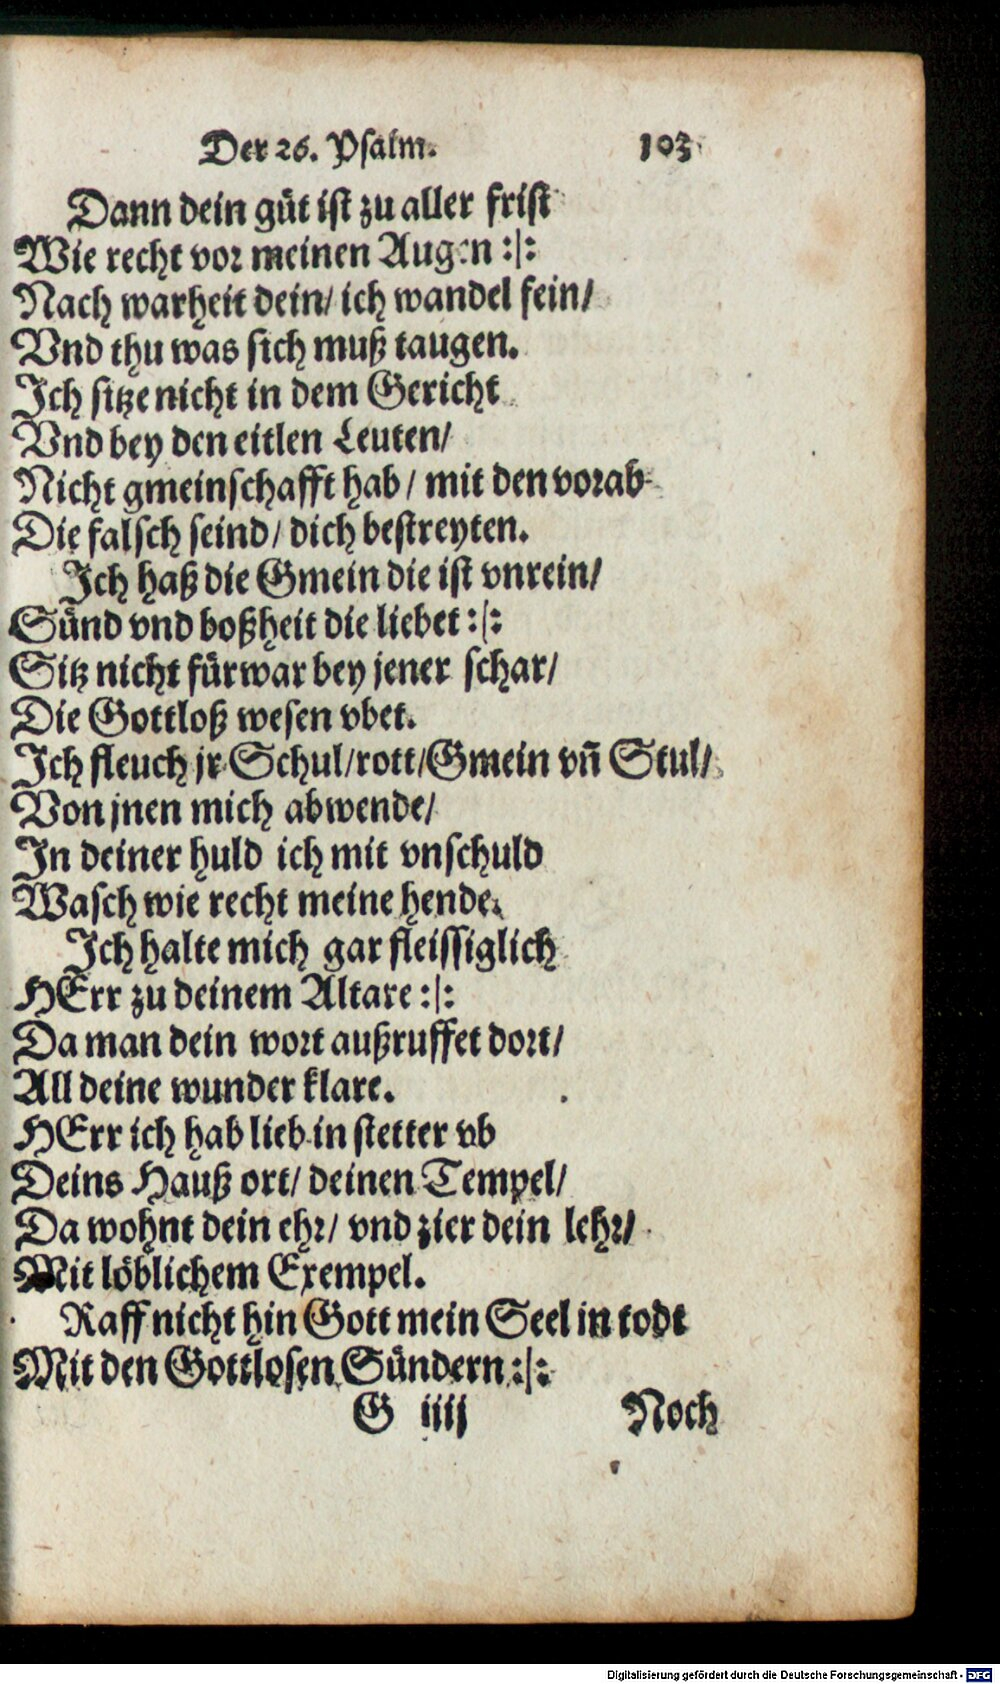 Der 26. Psalm. 103
Dann dein güt ist zu aller frist
Wie recht vor meinen Augen :|:
Nach warheit dein/ ich wandel fein/
Vnd thu was sich muß taugen.
Ich sitze nicht in dem Gericht
Vnd bey den eitlen Leuten/
Nicht gmeinschafft hab / mit den vorab
Die falsch seind/ dich bestreyten.
Ich haß die Gmein die ist vnrein/
Sünd vnd boßheit die liebet :|:
Sitz nicht fürwar bey jener schar/
Die Gottloß wesen vbet.
Ich fleuch jr Schul/rott/Gmein vñ Stul/
Von jnen mich abwende/
In deiner huld ich mit vnschuld
Wasch wie recht meine hende.
Ich halte mich gar fleissiglich
HErr zu deinem Altare :|:
Da man dein wort außruffet dort/
All deine wunder klare.
HErr ich hab lieb in stetter vb
Deins Hauß ort/ deinen Tempel/
Da wohnt dein ehr/ vnd zier dein lehr/
Mit löblichem Exempel.
Raff nicht hin Gott mein Seel in todt
Mit den Gottlosen Sündern :|:
G iiij Noch
Digitalisierung gefördert durch die Deutsche Forschungsgemeinschaft - DFG